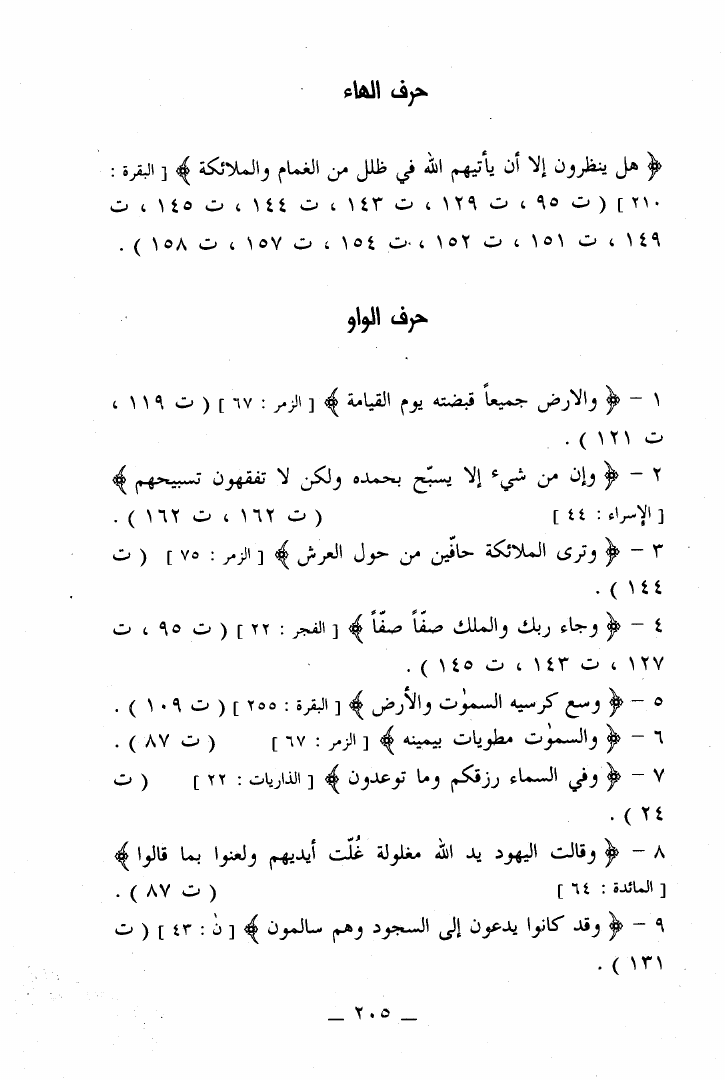 حرف الهاء
﴿ هل ينظرون إلا أن يأتيهم الله في ظلل من الغمام والملائكة ﴾ [ البقرة :
٢١٠ ] ( ت ٩٥ ، ت ١٢٩ ، ت ١٤٣ ، ت ١٤٤ ، ت ١٤٥ ، ت
١٤٩ ، ت ١٥١ ، ت ١٥٢ ، ت ١٥٤ ، ت ١٥٧ ، ت ١٥٨ ) .
حرف الواو
١ – ﴿ والارض جميعاً قبضته يوم القيامة ﴾ [ الزمر : ٦٧ ] ( ت ١١٩ ،
ت ١٢١ ) .
٢ – ﴿ وإن من شيء إلا يسبّح بحمده ولكن لا تفقهون تسبيحهم ﴾
[ الإسراء : ٤٤ ] ( ت ١٦٢ ، ت ١٦٢ ) .
٣ – ﴿ وترى الملائكة حافّين من حول العرش ﴾ [ الزمر : ٧٥ ] ( ت
١٤٤ ) .
٤ – ﴿ وجاء ربك والملك صفّاً صفّاً ﴾ [ الفجر : ٢٢ ] ( ت ٩٥ ، ت
١٢٧ ، ت ١٤٣ ، ت ١٤٥ ) .
٥ – ﴿ وسع كرسيه السموٰت والأرض ﴾ [ البقرة : ٢٥٥ ] ( ت ١٠٩ ) .
٦ – ﴿ والسموٰت مطويات بيمينه ﴾ [ الزمر : ٦٧ ] ( ت ٨٧ ) .
٧ – ﴿ وفي السماء رزقكم وما توعدون ﴾ [ الذاريات : ٢٢ ] ( ت
٢٤ ) .
٨ – ﴿ وقالت اليهود يد الله مغلولة غُلّت أيديهم ولعنوا بما قالوا ﴾
[ المائدة : ٦٤ ] ( ت ٨٧ ) .
٩ – ﴿ وقد كانوا يدعون إلى السجود وهم سالمون ﴾ [ نٰ : ٤٣ ] ( ت
١٣١ ) .
ــ ٢٠٥ ــ